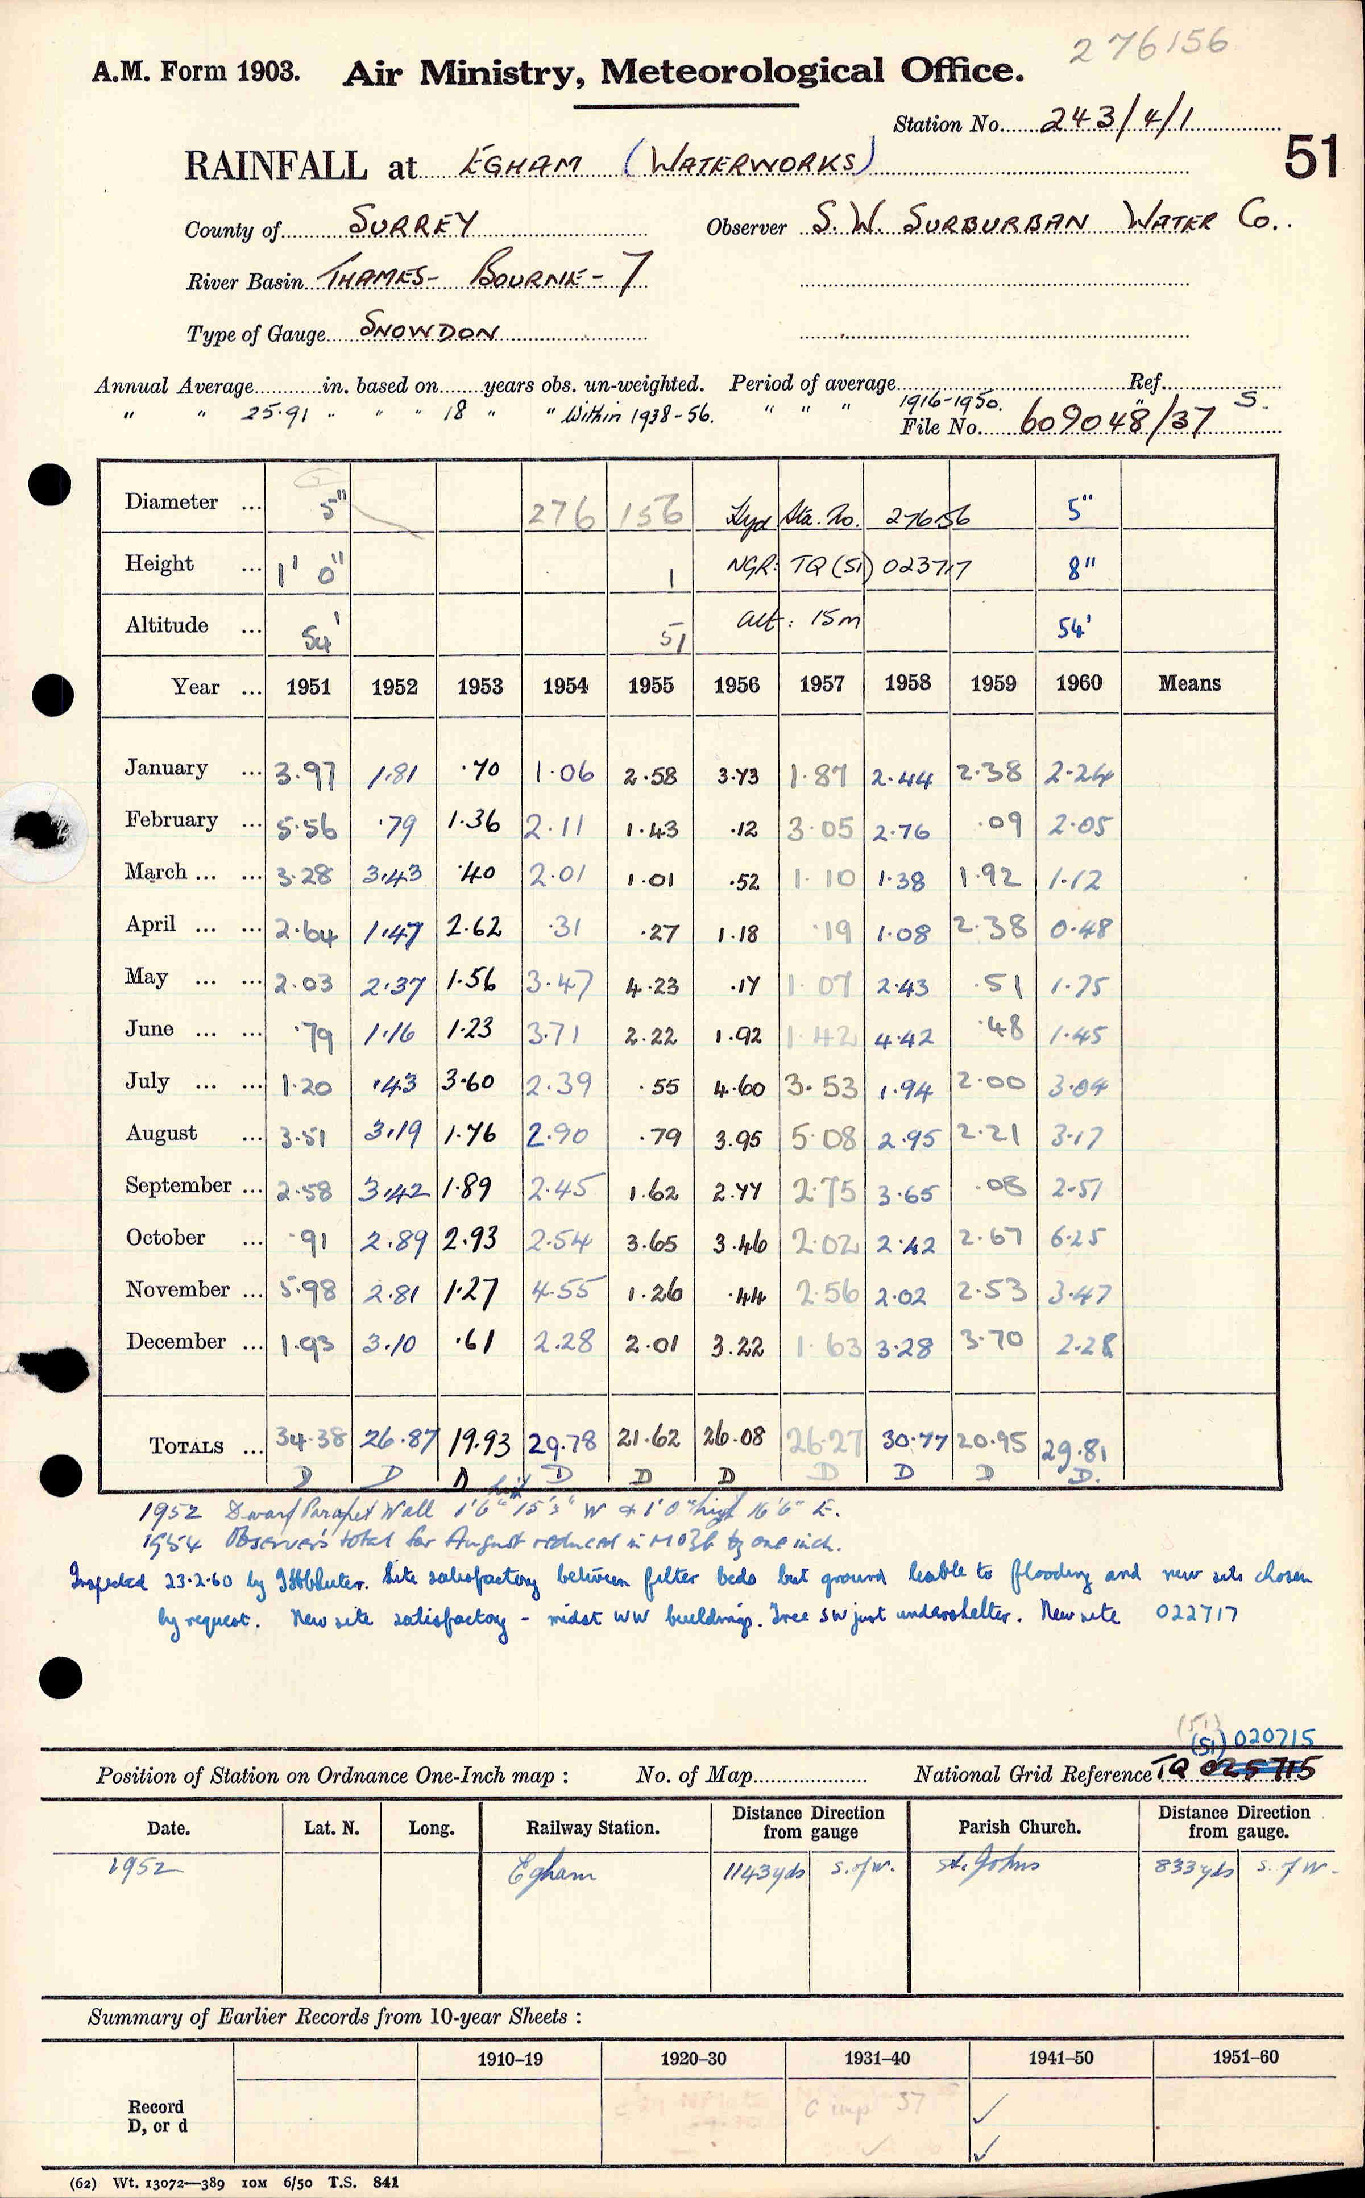 276156
A.M. Form 1903. Air Ministry, Meteorological Office.
Station No. 243/4/1
51
RAINFALL at EGHAM (WATERWORKS)
County of SURREY Observer S. W. SURBURBAN WATER Co.
River Basin THAMES - BOURNE - 7
Type of Gauge SNOWDON
Annual Average in. based on years obs. un-weighted. Period of average Ref.
" " 25.91 " " " 18 " " Within 1938-56. " " " 1916-1950. " S.
File No. 609048/37
Diameter ... 5" 276 156 Hyd Sta. No. 276156 5"
Height ... 1' 0" 1 NGR: TQ (51) 023717 8"
Altitude ... 54' 51 alt: 15m 54'
Year ... 1951 1952 1953 1954 1955 1956 1957 1958 1959 1960 Means
January ... 3.97 1.81 .70 1.06 2.58 3.73 1.87 2.44 2.38 2.24
February ... 5.56 .79 1.36 2.11 1.43 .12 3.05 2.76 .09 2.05
March ... ... 3.28 3.43 .40 2.01 1.01 .52 1.10 1.38 1.92 1.12
April ... ... 2.64 1.47 2.62 .31 .27 1.18 .19 1.08 2.38 0.48
May ... ... 2.03 2.37 1.56 3.47 4.23 .17 1.07 2.43 .51 1.75
June ... ... .79 1.16 1.23 3.71 2.22 1.92 1.42 4.42 .48 1.45
July ... ... 1.20 .43 3.60 2.39 .55 4.60 3.53 1.94 2.00 3.04
August ... 3.51 3.19 1.76 2.90 .79 3.95 5.08 2.95 2.21 3.17
September ... 2.58 3.42 1.89 2.45 1.62 2.77 2.75 3.65 .08 2.51
October ... .91 2.89 2.93 2.54 3.65 3.46 2.02 2.42 2.67 6.25
November ... 5.98 2.81 1.27 4.55 1.26 .44 2.56 2.02 2.53 3.47
December ... 1.93 3.10 .61 2.28 2.01 3.22 1.63 3.28 3.70 2.28
TOTALS ... 34.38 26.87 19.93 29.78 21.62 26.08 26.27 30.77 20.95 29.81
D D D D D D D D D D.
1952 Dwarf Parapet Wall 1'6" high 15'3" W & 1'0" high 16'6" E.
1954 Observer's total for August reduced in MO3b by one inch.
Inspected 23.2.60 by Site satisfactory between filter beds but ground liable to flooding and new site chosen
by request. New site satisfactory - midst WW buildings. Tree SW just undershelter. New site 022717
(51)
(51) 020715
Position of Station on Ordnance One-Inch map : No. of Map National Grid Reference TQ 025715
Date. Lat. N. Long. Railway Station. Distance Direction from gauge Parish Church. Distance Direction from gauge.
1952 Egham 1143yds S. of W. St. Johns 833yds S. of W.
Summary of Earlier Records from 10-year Sheets :
1910-19 1920-30 1931-40 1941-50 1951-60
Record
D, or d
C imp 37
(62) Wt. 13072—389 10M 6/50 T.S. 841